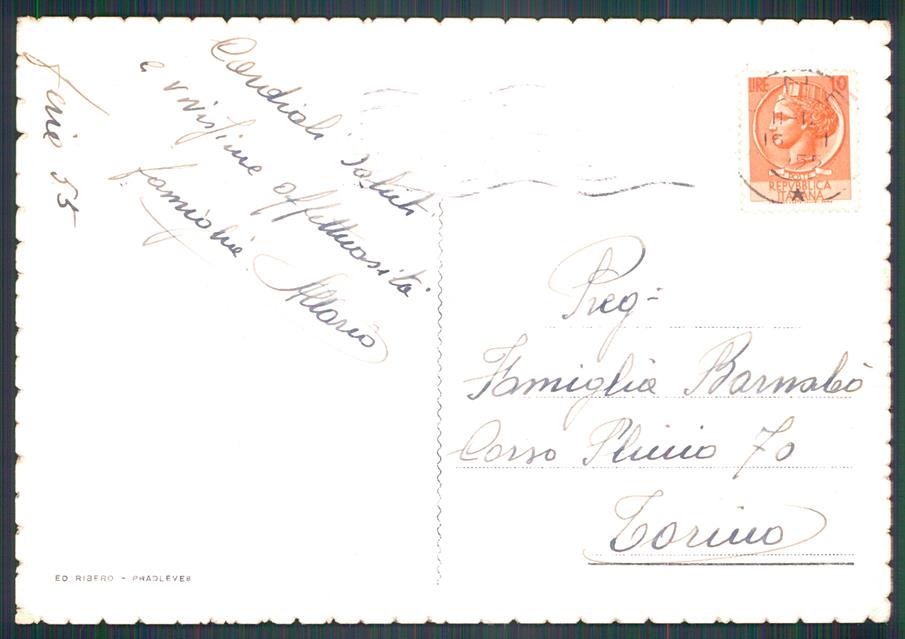 Cordiali saluti
e vivissime affettuosità
famiglie. Allario
55
LIRE 10
11-12
16 1
55
POSTE
REPVBBLICA
ITALIANA
Preg=
Famiglia Barnabò
Corso Plinio 70
Torino
ED RIBERO - PRADLEVES